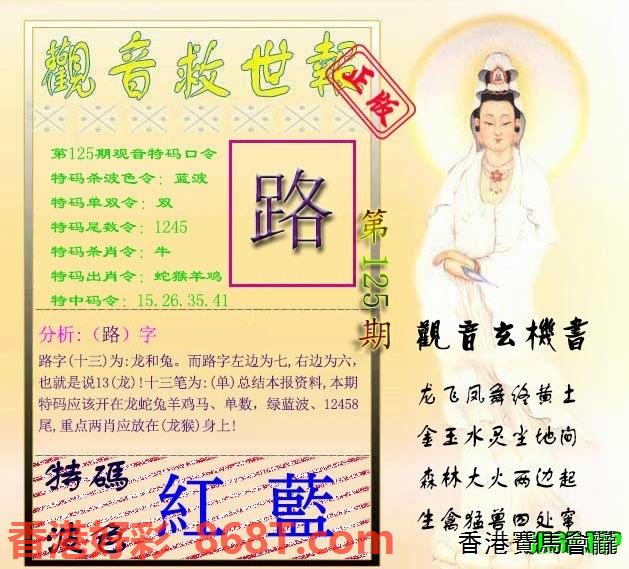 觀音救世報
正版
第125期观音特码口令
特码杀波色令：蓝波
特码单双令：双
特码尾数令：1245
特码杀肖令：牛
特码出肖令：蛇猴羊鸡
特中码令：15.26.35.41
路
第125期
分析:（路）字
路字(十三)为:龙和兔。而路字左边为七,右边为六,
也就是说13(龙)!十三笔为:(单)总结本报资料,本期
特码应该开在龙蛇兔羊鸡马、单数，绿蓝波、12458
尾,重点两肖应放在(龙猴)身上!
特碼
波色
紅 藍
觀音玄機書
龙飞凤舞终黄土
金玉水灵尘地间
森林大火两边起
生禽猛兽四处窜
香港好彩 868T.com
香港賽馬會